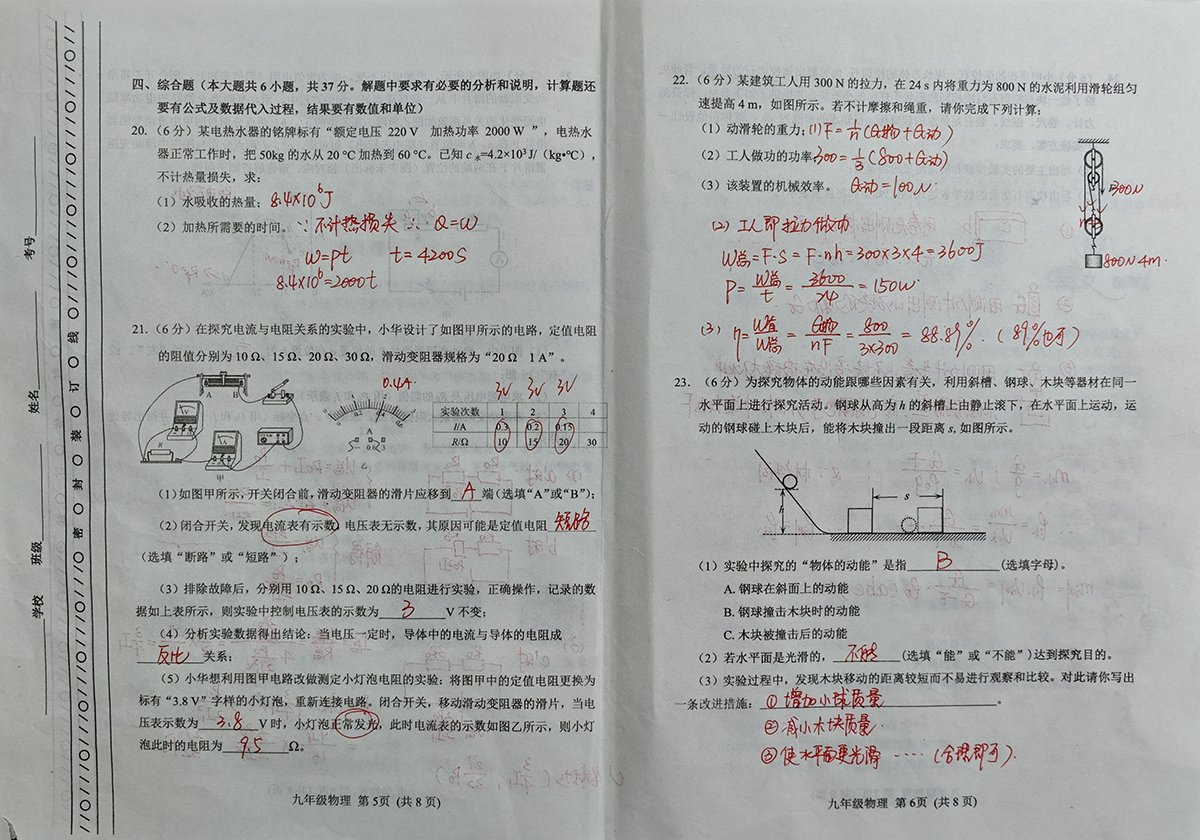 考号
姓名
班级
学校
线
订
装
封
密
四、综合题（本大题共6小题，共37分。解题中要求有必要的分析和说明，计算题还
要有公式及数据代入过程，结果要有数值和单位）
20.（6分）某电热水器的铭牌标有“额定电压 220V 加热功率 2000W ”，电热水
器正常工作时，把50kg的水从20℃加热到60℃。已知c水=4.2×10³J/（kg•℃），
不计热量损失，求：
（1）水吸收的热量；8.4×10⁶J
（2）加热所需要的时间。∵不计热损失 ∴Q=W
W=Pt t=4200S
8.4×10⁶=2000t
21.（6分）在探究电流与电阻关系的实验中，小华设计了如图甲所示的电路，定值电阻
的阻值分别为10Ω、15Ω、20Ω、30Ω，滑动变阻器规格为“20Ω 1A”。
0.4A 3V 3V 3V
A B
V
A
R
甲
A
实验次数 1 2 3 4
I/A 0.3 0.2 0.15
R/Ω 10 15 20 30
（1）如图甲所示，开关闭合前，滑动变阻器的滑片应移到 A 端（选填“A”或“B”）；
（2）闭合开关，发现电流表有示数，电压表无示数，其原因可能是定值电阻 短路
（选填“断路”或“短路”）；
（3）排除故障后，分别用10Ω、15Ω、20Ω的电阻进行实验，正确操作，记录的数
据如上表所示，则实验中控制电压表的示数为 3 V不变；
（4）分析实验数据得出结论：当电压一定时，导体中的电流与导体的电阻成
反比 关系；
（5）小华想利用图甲电路改做测定小灯泡电阻的实验：将图甲中的定值电阻更换为
标有“3.8V”字样的小灯泡，重新连接电路。闭合开关，移动滑动变阻器的滑片，当电
压表示数为 3.8 V时，小灯泡正常发光，此时电流表的示数如图乙所示，则小灯
泡此时的电阻为 9.5 Ω。
九年级物理 第5页（共8页）
22.（6分）某建筑工人用300N的拉力，在24s内将重力为800N的水泥利用滑轮组匀
速提高4m，如图所示。若不计摩擦和绳重，请你完成下列计算：
（1）动滑轮的重力；(1)F=1/n(G物+G动)
（2）工人做功的功率；300=1/3(800+G动)
（3）该装置的机械效率。 G动=100N
300N
800N 4m.
(2) 工人即拉力做功
W总=F·S=F·nh=300×3×4=3600J
P=W总/t=3600/24=150W
(3) η=W有/W总=G物/nF=800/3×300=88.89%.（89%也可）
23.（6分）为探究物体的动能跟哪些因素有关，利用斜槽、钢球、木块等器材在同一
水平面上进行探究活动。钢球从高为h的斜槽上由静止滚下，在水平面上运动，运
动的钢球碰上木块后，能将木块撞出一段距离s，如图所示。
h
s
（1）实验中探究的“物体的动能”是指 B （选填字母）。
A. 钢球在斜面上的动能
B. 钢球撞击木块时的动能
C. 木块被撞击后的动能
（2）若水平面是光滑的， 不能 （选填“能”或“不能”）达到探究目的。
（3）实验过程中，发现木块移动的距离较短而不易进行观察和比较。对此请你写出
一条改进措施：①增加小球质量 。
②减小木块质量
③使水平面更光滑 ……（合理即可）.
九年级物理 第6页（共8页）